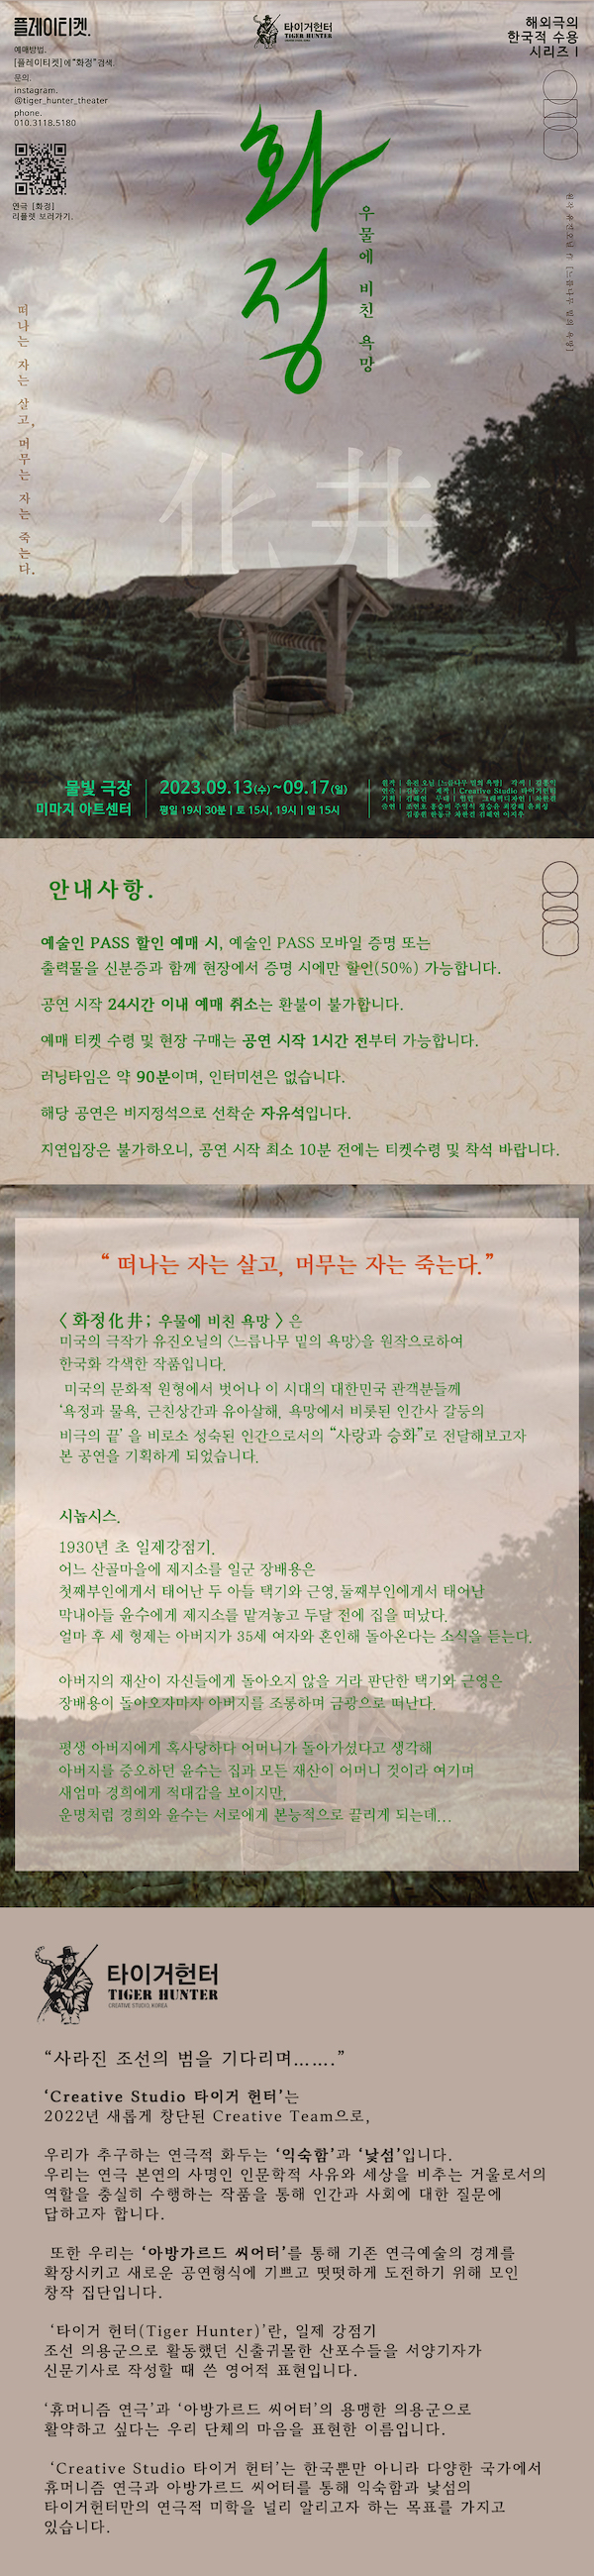 플레이티켓.
예매방법.
[플레이티켓]에"화정"검색.
문의.
instagram.
@tiger_hunter_theater
phone.
010.3118.5180
연극 [화정]
리플렛 보러가기.
타이거헌터
TIGER HUNTER
해외극의
한국적 수용
시리즈 I
화정
우물에 비친 욕망
떠나는 자는 살고, 머무는 자는 죽는다.
化井
물빛 극장
미마지 아트센터
2023.09.13(수)~09.17(일)
평일 19시 30분 | 토 15시, 19시 | 일 15시
안내사항.
예술인 PASS 할인 예매 시, 예술인 PASS 모바일 증명 또는
출력물을 신분증과 함께 현장에서 증명 시에만 할인(50%) 가능합니다.
공연 시작 24시간 이내 예매 취소는 환불이 불가합니다.
예매 티켓 수령 및 현장 구매는 공연 시작 1시간 전부터 가능합니다.
러닝타임은 약 90분이며, 인터미션은 없습니다.
해당 공연은 비지정석으로 선착순 자유석입니다.
지연입장은 불가하오니, 공연 시작 최소 10분 전에는 티켓수령 및 착석 바랍니다.
“ 떠나는 자는 살고, 머무는 자는 죽는다.”
〈 화정化井; 우물에 비친 욕망 〉은
미국의 극작가 유진오닐의 〈느릅나무 밑의 욕망〉을 원작으로하여
한국화 각색한 작품입니다.
미국의 문화적 원형에서 벗어나 이 시대의 대한민국 관객분들께
‘욕정과 물욕, 근친상간과 유아살해, 욕망에서 비롯된 인간사 갈등의
비극의 끝’ 을 비로소 성숙된 인간으로서의 “사랑과 승화”로 전달해보고자
본 공연을 기획하게 되었습니다.
시놉시스.
1930년 초 일제강점기.
어느 산골마을에 제지소를 일군 장배용은
첫째부인에게서 태어난 두 아들 택기와 근영,둘째부인에게서 태어난
막내아들 윤수에게 제지소를 맡겨놓고 두달 전에 집을 떠났다.
얼마 후 세 형제는 아버지가 35세 여자와 혼인해 돌아온다는 소식을 듣는다.
아버지의 재산이 자신들에게 돌아오지 않을 거라 판단한 택기와 근영은
장배용이 돌아오자마자 아버지를 조롱하며 금광으로 떠난다.
평생 아버지에게 혹사당하다 어머니가 돌아가셨다고 생각해
아버지를 증오하던 윤수는 집과 모든 재산이 어머니 것이라 여기며
새엄마 경희에게 적대감을 보이지만,
운명처럼 경희와 윤수는 서로에게 본능적으로 끌리게 되는데...
타이거헌터
TIGER HUNTER
CREATIVE STUDIO. KOREA
“사라진 조선의 범을 기다리며.......”
‘Creative Studio 타이거 헌터’는
2022년 새롭게 창단된 Creative Team으로,
우리가 추구하는 연극적 화두는 ‘익숙함’과 ‘낯섬’입니다.
우리는 연극 본연의 사명인 인문학적 사유와 세상을 비추는 거울로서의
역할을 충실히 수행하는 작품을 통해 인간과 사회에 대한 질문에
답하고자 합니다.
또한 우리는 ‘아방가르드 씨어터’를 통해 기존 연극예술의 경계를
확장시키고 새로운 공연형식에 기쁘고 떳떳하게 도전하기 위해 모인
창작 집단입니다.
‘타이거 헌터(Tiger Hunter)’란, 일제 강점기
조선 의용군으로 활동했던 신출귀몰한 산포수들을 서양기자가
신문기사로 작성할 때 쓴 영어적 표현입니다.
‘휴머니즘 연극’과 ‘아방가르드 씨어터’의 용맹한 의용군으로
활약하고 싶다는 우리 단체의 마음을 표현한 이름입니다.
‘Creative Studio 타이거 헌터’는 한국뿐만 아니라 다양한 국가에서
휴머니즘 연극과 아방가르드 씨어터를 통해 익숙함과 낯섬의
타이거헌터만의 연극적 미학을 널리 알리고자 하는 목표를 가지고
있습니다.